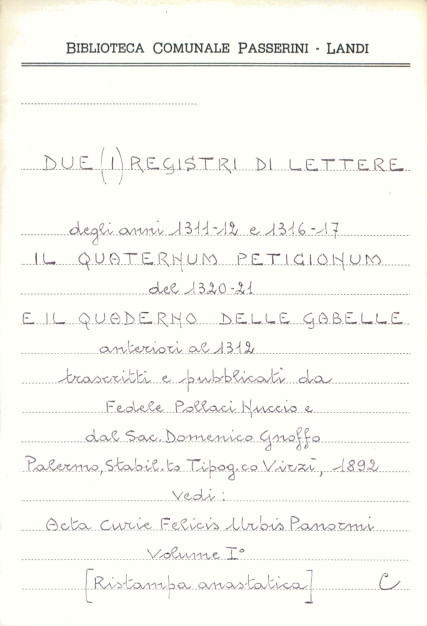 BIBLIOTECA COMUNALE PASSERINI - LANDI
DUE (I) REGISTRI DI LETTERE
degli anni 1311-12 e 1316-17
IL QUATERNUM PETICIONUM
del 1320-21
E IL QUADERNO DELLE GABELLE
anteriori al 1312
trascritti e pubblicati da
Fedele Pollaci Nuccio e
dal Sac. Domenico Gnoffo
Palermo, Stabil.to Tipog.co Virzì, 1892
vedi:
Acta Curie Felicis Urbis Panormi
Volume I°
[Ristampa anastatica] C